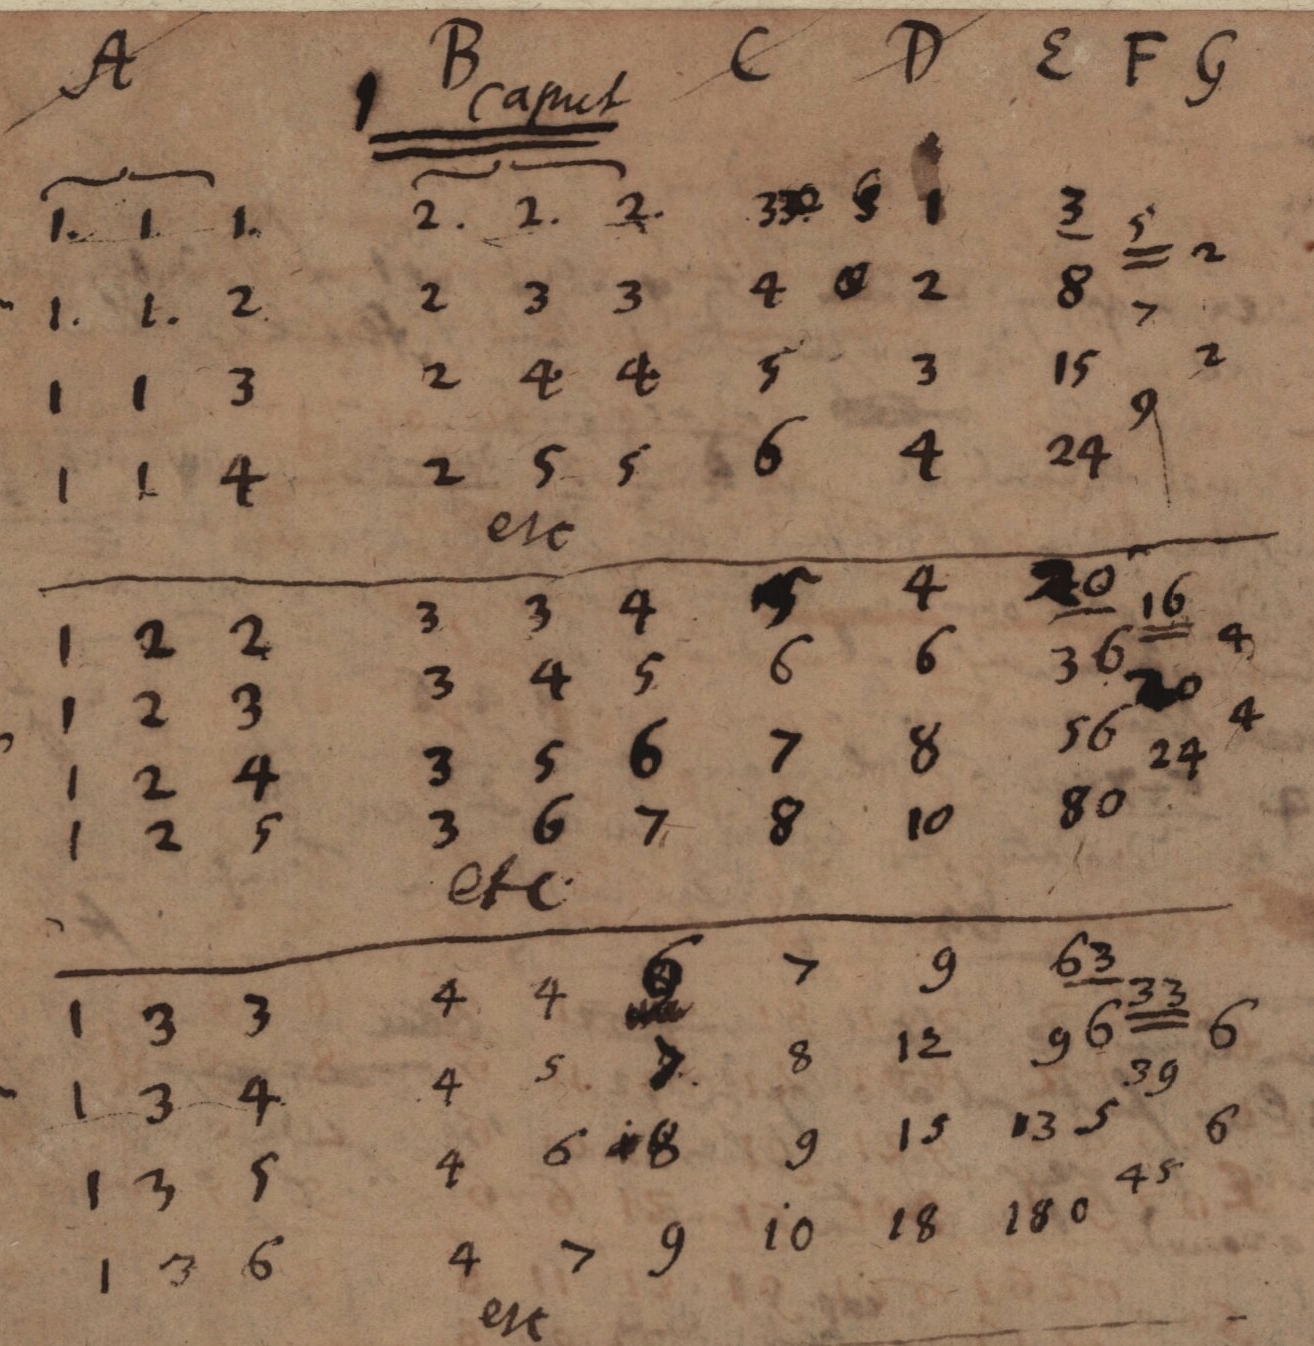 A B C D E F G
1 caput
1. 1. 1. 2. 2. 2. 3 1 3
5 2
1. 1. 2 2 3 3 4 2 8
7
1 1 3 2 4 4 5 3 15 2
9
1 1 4 2 5 5 6 4 24
etc
1 2 2 3 3 4 5 4 20
16 4
1 2 3 3 4 5 6 6 36
20 4
1 2 4 3 5 6 7 8 56
24
1 2 5 3 6 7 8 10 80
etc
1 3 3 4 4 6 7 9 63
33 6
1 3 4 4 5 7 8 12 96
39
1 3 5 4 6 8 9 15 135 6
45
1 3 6 4 7 9 10 18 180
etc